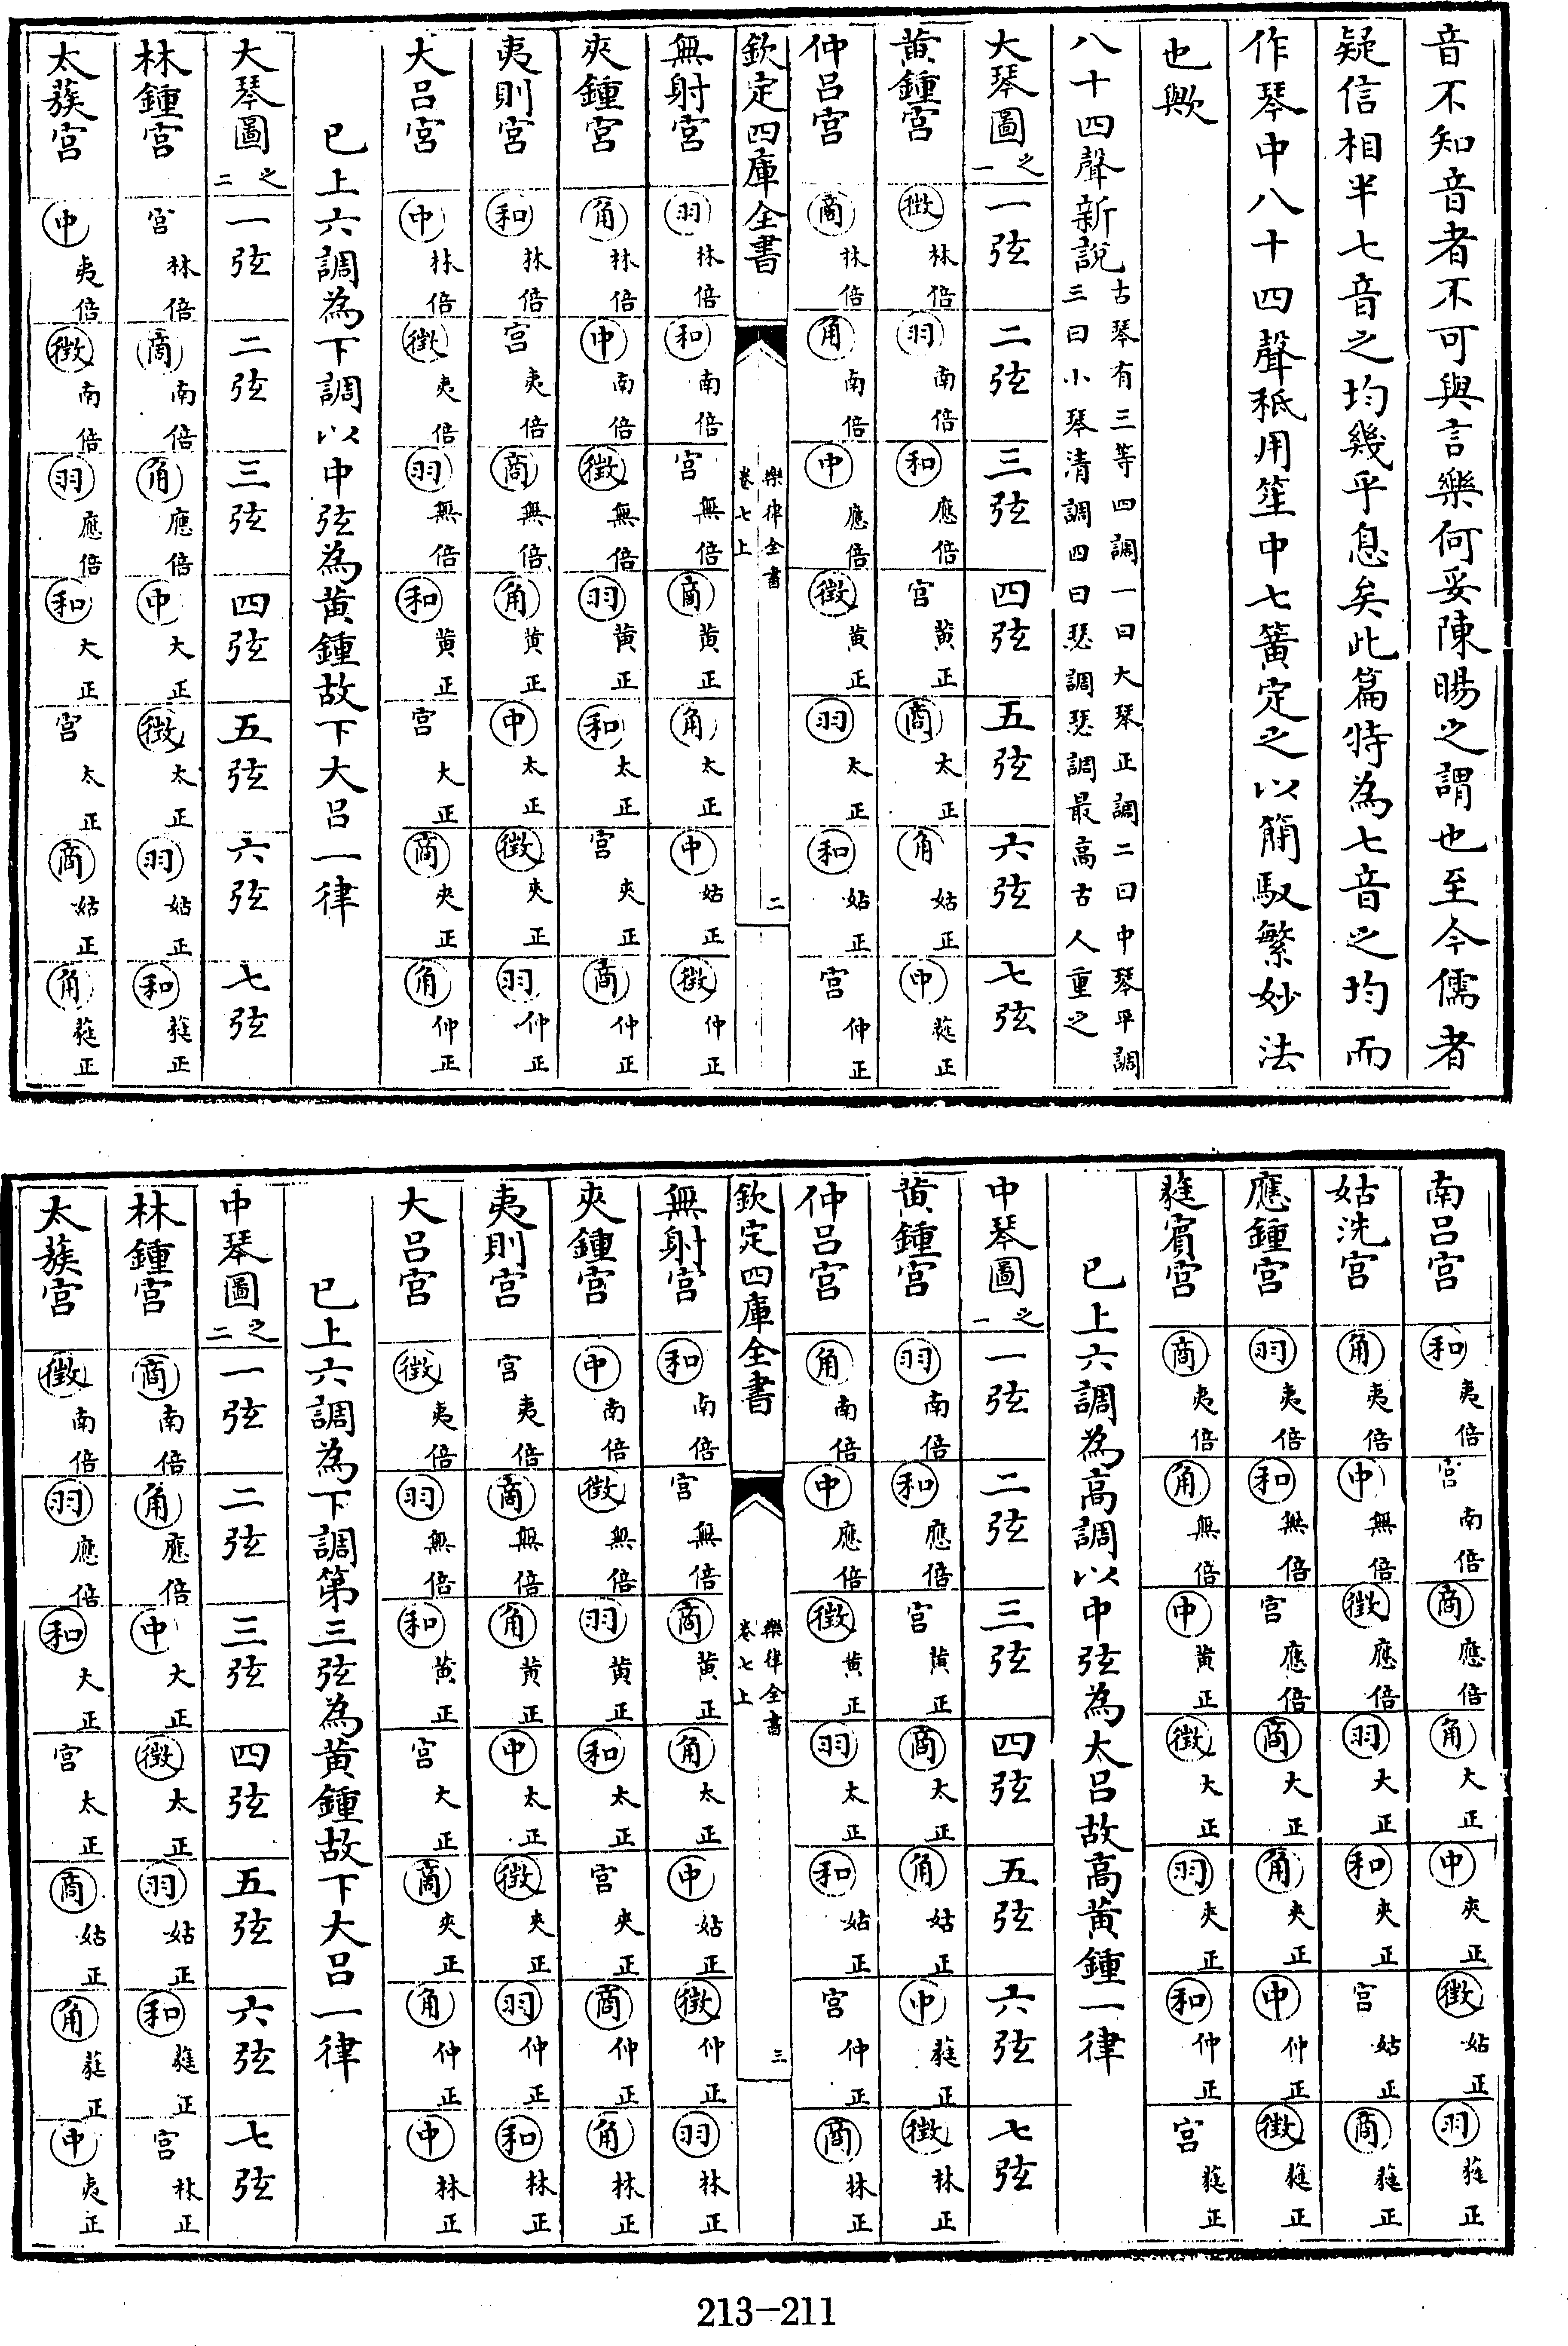 音不知音者不可與言樂何妥陳暘之謂也至今儒者
疑信相半七音之均幾乎息矣此篇特為七音之均而
作琴中八十四聲秪用笙中七簧定之以簡馭繁妙法
也歟
八十四聲新說古琴有三等四調一曰大琴正調二曰中琴平調
三曰小琴清調四曰瑟調瑟調最高古人重之
大琴圖之一 一弦 二弦 三弦 四弦 五弦 六弦 七弦
黃鍾宮 徵林倍 羽南倍 和應倍 宮黃正 商太正 角姑正 中蕤正
仲呂宮 商林倍 角南倍 中應倍 徵黃正 羽太正 和姑正 宮仲正
欽定四庫全書 樂律全書 卷七上 二
無射宮 羽林倍 和南倍 宮無倍 商黃正 角太正 中姑正 徵仲正
夾鍾宮 角林倍 中南倍 徵無倍 羽黃正 和太正 宮夾正 商仲正
夷則宮 和林倍 宮夷倍 商無倍 角黃正 中太正 徵夾正 羽仲正
大呂宮 中林倍 徵夷倍 羽無倍 和黃正 宮大正 商夾正 角仲正
已上六調為下調以中弦為黃鍾故下大呂一律
大琴圖之二 一弦 二弦 三弦 四弦 五弦 六弦 七弦
林鍾宮 宮林倍 商南倍 角應倍 中大正 徵太正 羽姑正 和蕤正
太蔟宮 中夷倍 徵南倍 羽應倍 和大正 宮太正 商姑正 角蕤正
南呂宮 和夷倍 宮南倍 商應倍 角大正 中夾正 徵姑正 羽蕤正
姑洗宮 角夷倍 中無倍 徵應倍 羽大正 和夾正 宮姑正 商蕤正
應鍾宮 羽夷倍 和無倍 宮應倍 商大正 角夾正 中仲正 徵蕤正
蕤賔宮 商夷倍 角無倍 中黃正 徵大正 羽夾正 和仲正 宮蕤正
已上六調為高調以中弦為太呂故高黃鍾一律
中琴圖之一 一弦 二弦 三弦 四弦 五弦 六弦 七弦
黃鍾宮 羽南倍 和應倍 宮黃正 商太正 角姑正 中蕤正 徵林正
仲呂宮 角南倍 中應倍 徵黃正 羽太正 和姑正 宮仲正 商林正
欽定四庫全書 樂律全書 卷七上 三
無射宮 和南倍 宮無倍 商黃正 角太正 中姑正 徵仲正 羽林正
夾鍾宮 中南倍 徵無倍 羽黃正 和太正 宮夾正 商仲正 角林正
夷則宮 宮夷倍 商無倍 角黃正 中太正 徵夾正 羽仲正 和林正
大呂宮 徵夷倍 羽無倍 和黃正 宮大正 商夾正 角仲正 中林正
已上六調為下調第三弦為黃鍾故下大呂一律
中琴圖之二 一弦 二弦 三弦 四弦 五弦 六弦 七弦
林鍾宮 商南倍 角應倍 中大正 徵太正 羽姑正 和蕤正 宮林正
太蔟宮 徵南倍 羽應倍 和大正 宮太正 商姑正 角蕤正 中夷正
213-211